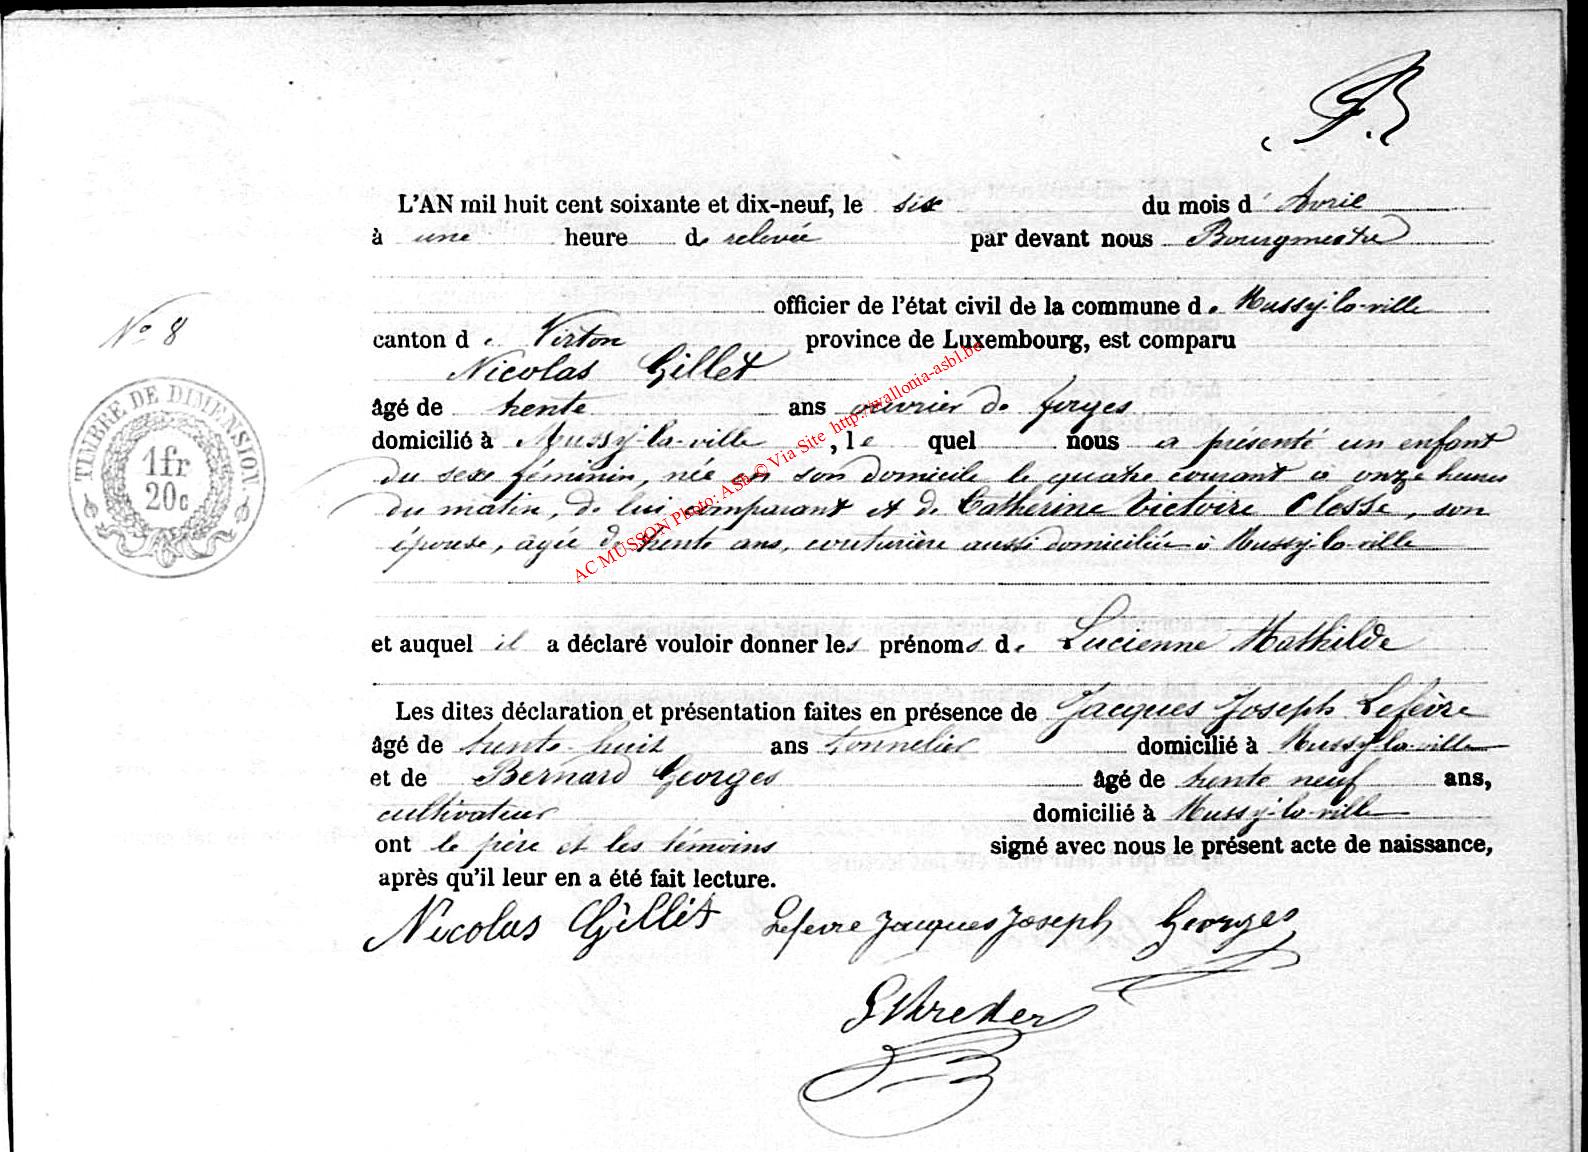 F. B
L'AN mil huit cent soixante et dix-neuf, le six du mois d' Avril
à une heure de relevée par devant nous Bourgmestre
officier de l'état civil de la commune de Mussy-la-ville
No 8
canton de Virton province de Luxembourg, est comparu
Nicolas Gillet
âgé de trente ans ouvrier de forges
domicilié à Mussy-la-ville, le quel nous a présenté un enfant
du sexe féminin, née en son domicile le quatre courant à onze heures
du matin, de lui comparant et de Catherine Victoire Closse, son
épouse, agée de trente ans, couturière aussi domiciliée à Mussy-la-ville
TIMBRE DE DIMENSION
1fr
20c
AC MUSSON Photo: ASh © Via Site http://wallonia-asbl.be
et auquel il a déclaré vouloir donner les prénoms de Lucienne Mathilde
Les dites déclaration et présentation faites en présence de Jacques Joseph Lefèvre
âgé de trente-huit ans tonnelier domicilié à Mussy-la-ville
et de Bernard Georges âgé de trente neuf ans,
cultivateur domicilié à Mussy-la-ville
ont le père et les témoins signé avec nous le présent acte de naissance,
après qu'il leur en a été fait lecture.
Nicolas Gillet Lefevre Jacques Joseph Georges